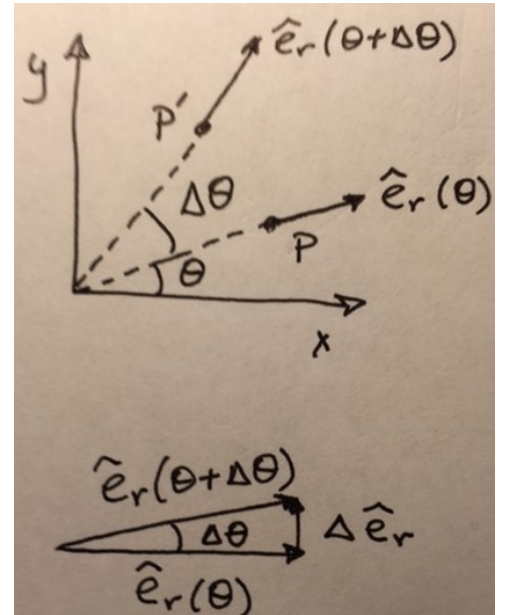 y
ê_r(θ+Δθ)
P′
Δθ
ê_r(θ)
P
θ
x
ê_r(θ+Δθ)
Δθ
Δê_r
ê_r(θ)